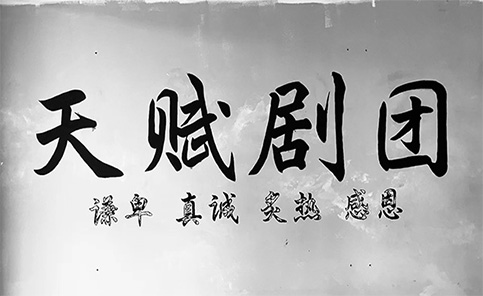 天赋剧团
谦卑 真诚 炙热 感恩